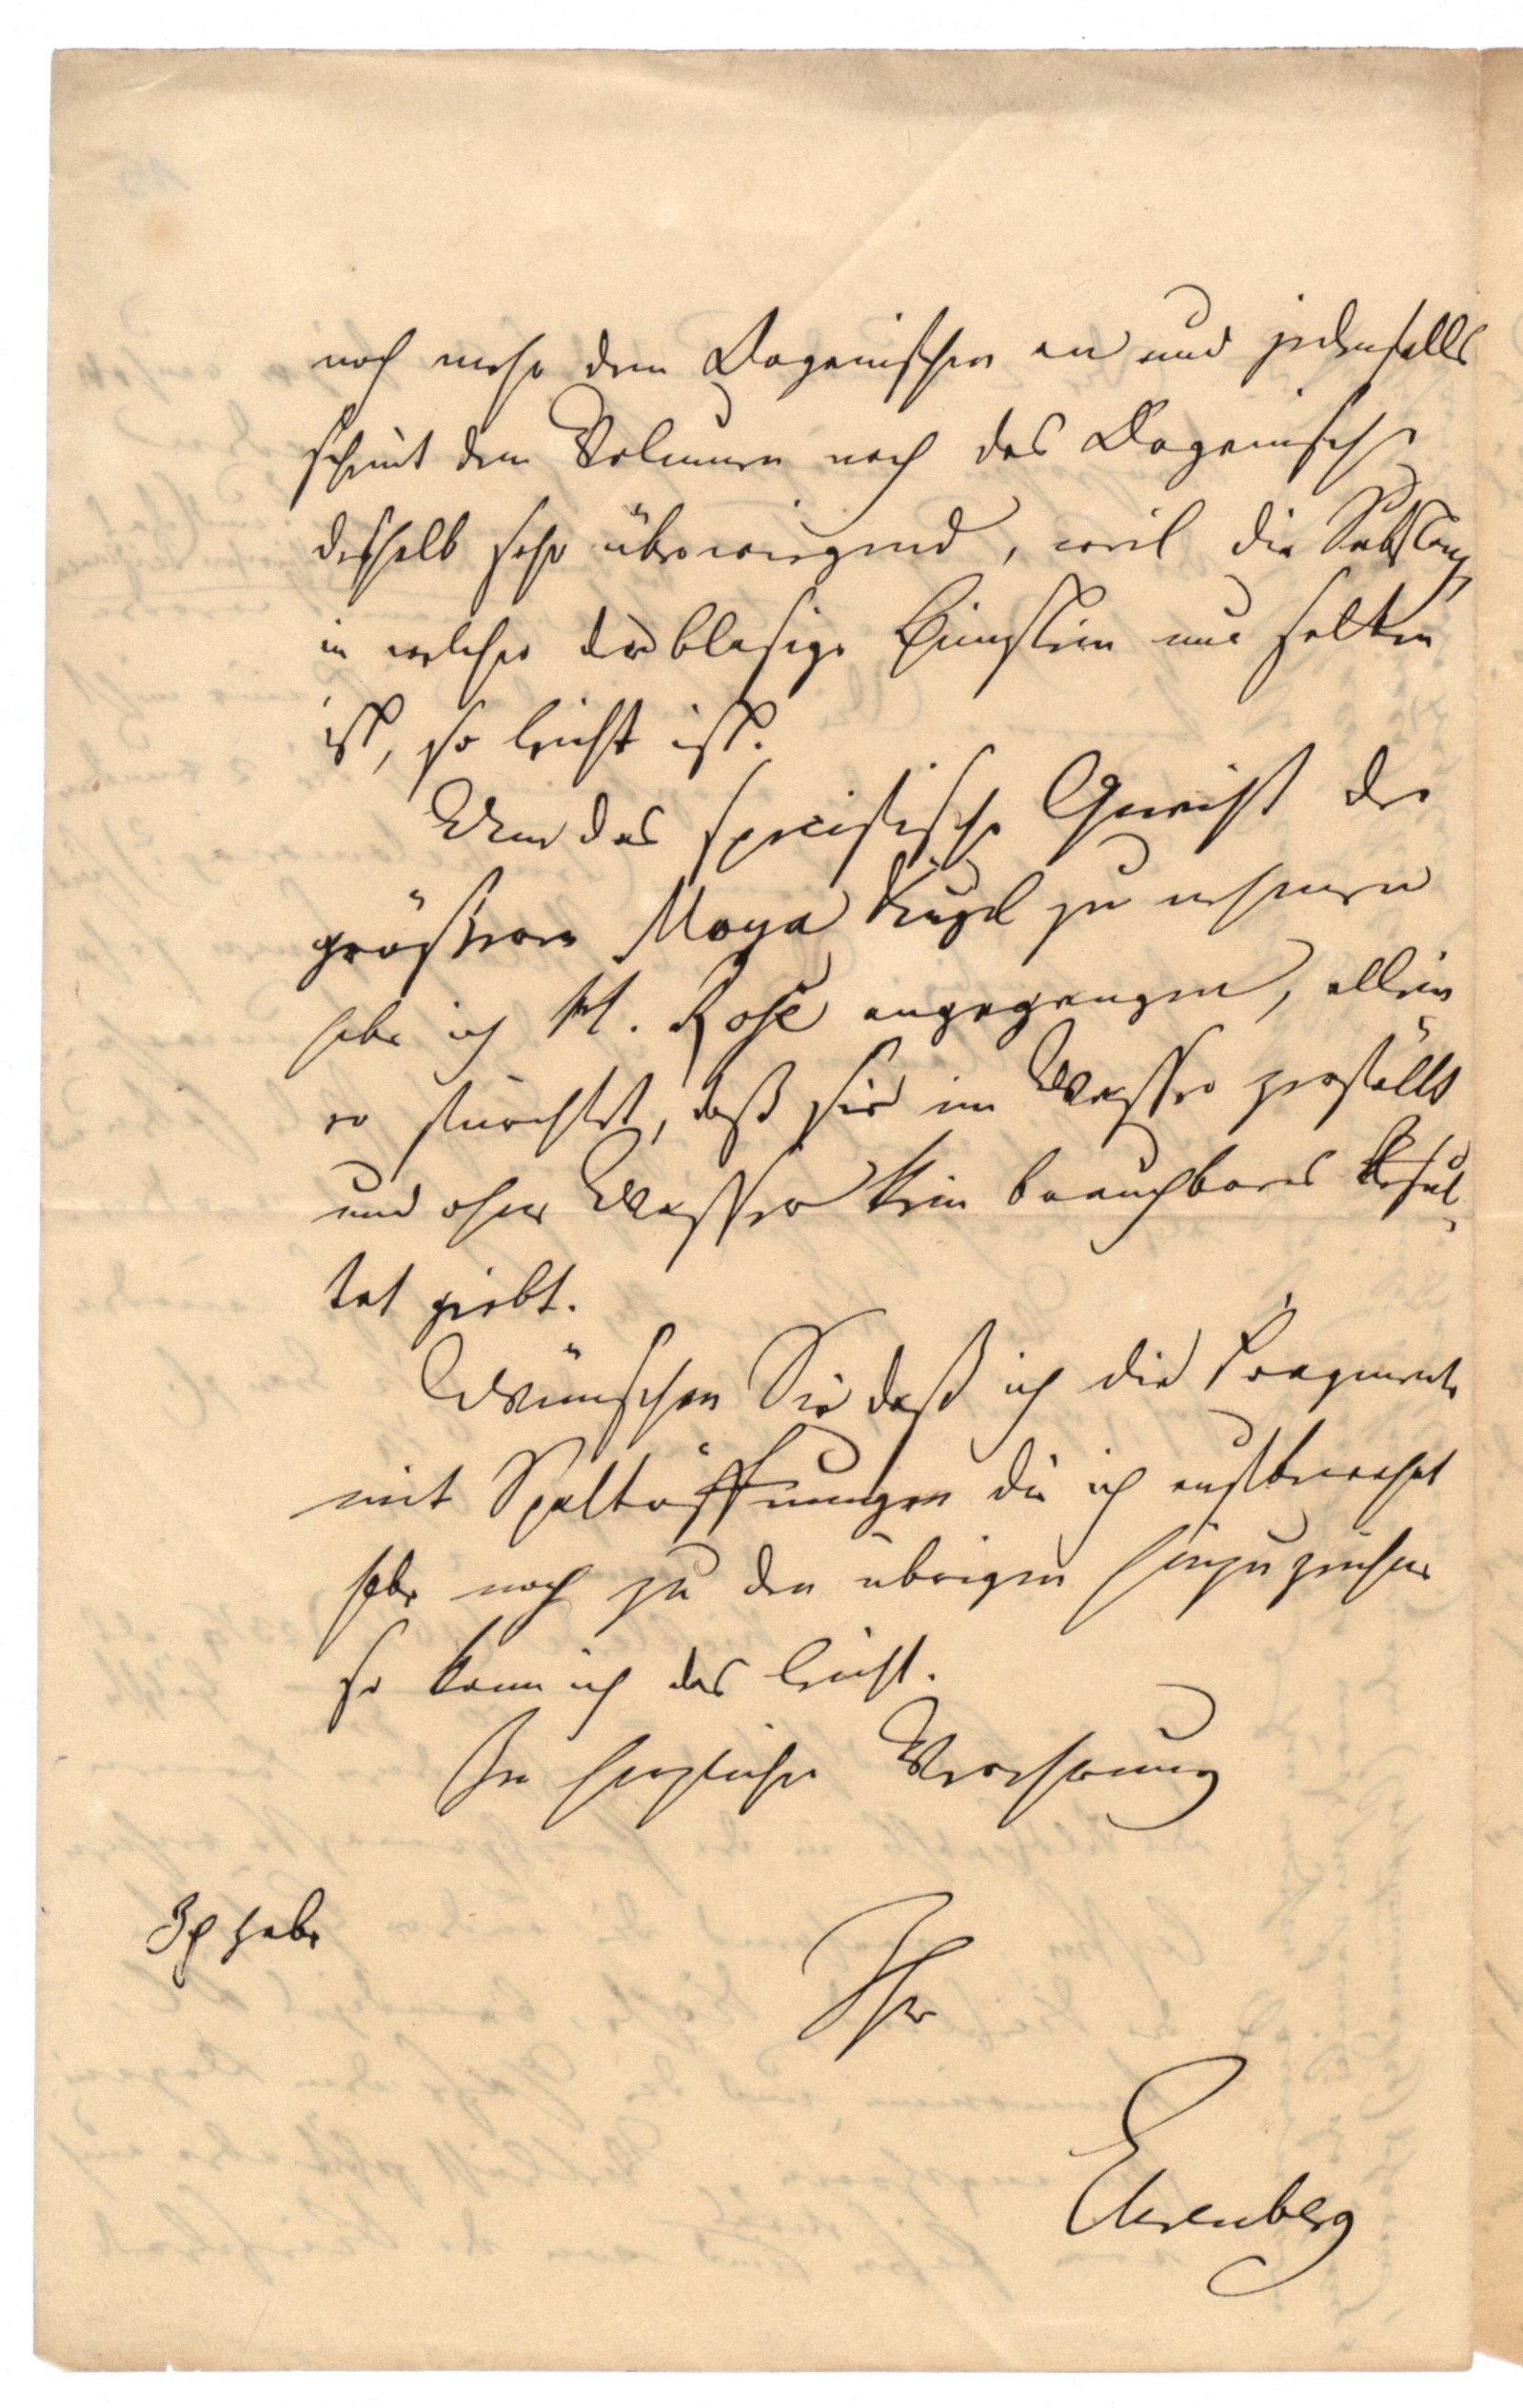 noch mehr dem Organischen an und jedenfalls
scheint dem Volumen nach das Organische
deshalb sehr überwiegend, weil die Substanz
in welcher der blasige Bimstein nur selten
ist, so leicht ist.
Um das specifische Gewicht der
größeren Moya Kugel zu nehmen
habe ich H. Rose angegangen, allein
er fürchtet, daß sie im Wasser zerfällt
und ohne Wasser kein brauchbares Resul-
tat giebt.
Wünschen Sie daß ich die Fragmente
mit Spaltöffnungen die ich aufbewahrt
habe noch zu den übrigen hinzuzeichne
so kann ich das leicht.
In herzlicher Verehrung
Ich habe
Ihr
Ehrenberg